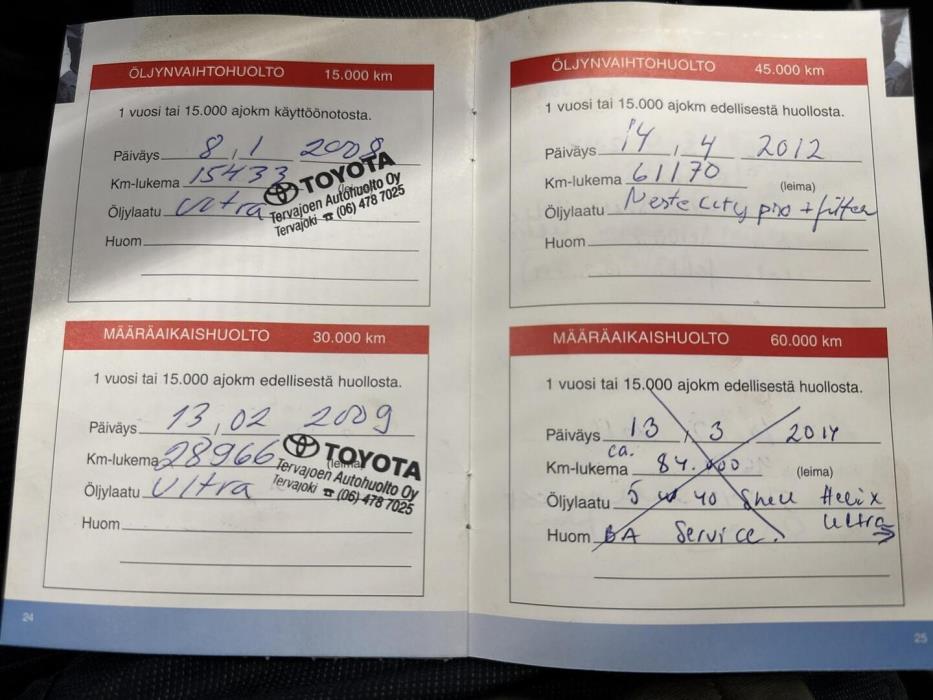 ÖLJYNVAIHTOHUOLTO 15.000 km
1 vuosi tai 15.000 ajokm käyttöönotosta.
Päiväys 8, 1 2008
Km-lukema 15433 (leima)
Öljylaatu Ultra
Huom
TOYOTA
Tervajoen Autohuolto Oy
Tervajoki ☎ (06) 478 7025
MÄÄRÄAIKAISHUOLTO 30.000 km
1 vuosi tai 15.000 ajokm edellisestä huollosta.
Päiväys 13, 02 2009
Km-lukema 28966 (leima)
Öljylaatu Ultra
Huom
TOYOTA
Tervajoen Autohuolto Oy
Tervajoki ☎ (06) 478 7025
24
ÖLJYNVAIHTOHUOLTO 45.000 km
1 vuosi tai 15.000 ajokm edellisestä huollosta.
Päiväys 14, 4 2012
Km-lukema 61170 (leima)
Öljylaatu Neste City pro + filter
Huom
MÄÄRÄAIKAISHUOLTO 60.000 km
1 vuosi tai 15.000 ajokm edellisestä huollosta.
Päiväys 13, 3 2014
ca.
Km-lukema 84.000 (leima)
Öljylaatu 5 w 40 Shell Helix
Ultra
Huom Service. →
25